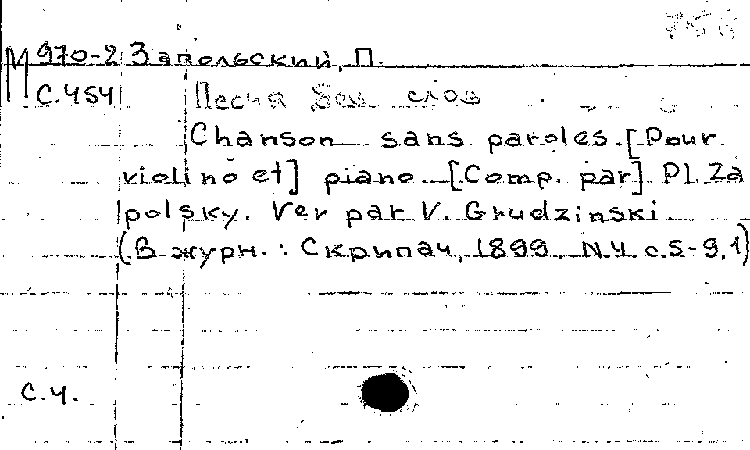 М 970-2 Запольский, П.
С.454 Песня без слов
Chanson sans paroles. [Pour
violino et] piano. [Comp. par] Pl. Za
polsky. Ver par V. Grudzinski
(В журн. : Скрипач, 1899. N.4 с.5-9,1)
С.4.